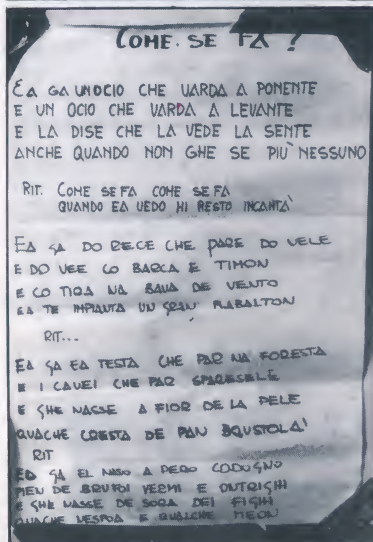 COME SE FA ?
EA GA UN OCIO CHE VARDA A PONENTE
E UN OCIO CHE VARDA A LEVANTE
E LA DISE CHE LA VEDE LA SENTE
ANCHE QUANDO NON GHE SE PIÙ NESSUNO
RIT. COME SE FA COME SE FA
QUANDO EA VEDO MI RESTO INCANTÀ
EA GA DO RECE CHE PARE DO VELE
E DO VEE CO BARCA E TIMON
E CO TIRA NA BAVA DE VENTO
EA TE IMPIANTA UN GRAN RABALTON
RIT...
EA GA EA TESTA CHE PAR NA FORESTA
E I CAVEI CHE PAR SPARESELE
E GHE NASSE A FIOR DE LA PELE
QUACHE CRESTA DE PAN BRUSTOLÀ
RIT
EA GA EL NASO A PERO CODOGNO
PIEN DE BRUFOI VERMI E ONTRIGHI
E GHE NASSE DE SORA DEI FIGHI
QUACHE VESPOA E QUALCHE MEON